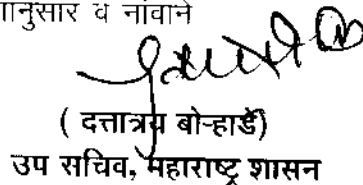 ानुसार व नांवाने
( दत्तात्रय बोऱ्हाडे)
उप सचिव, महाराष्ट्र शासन